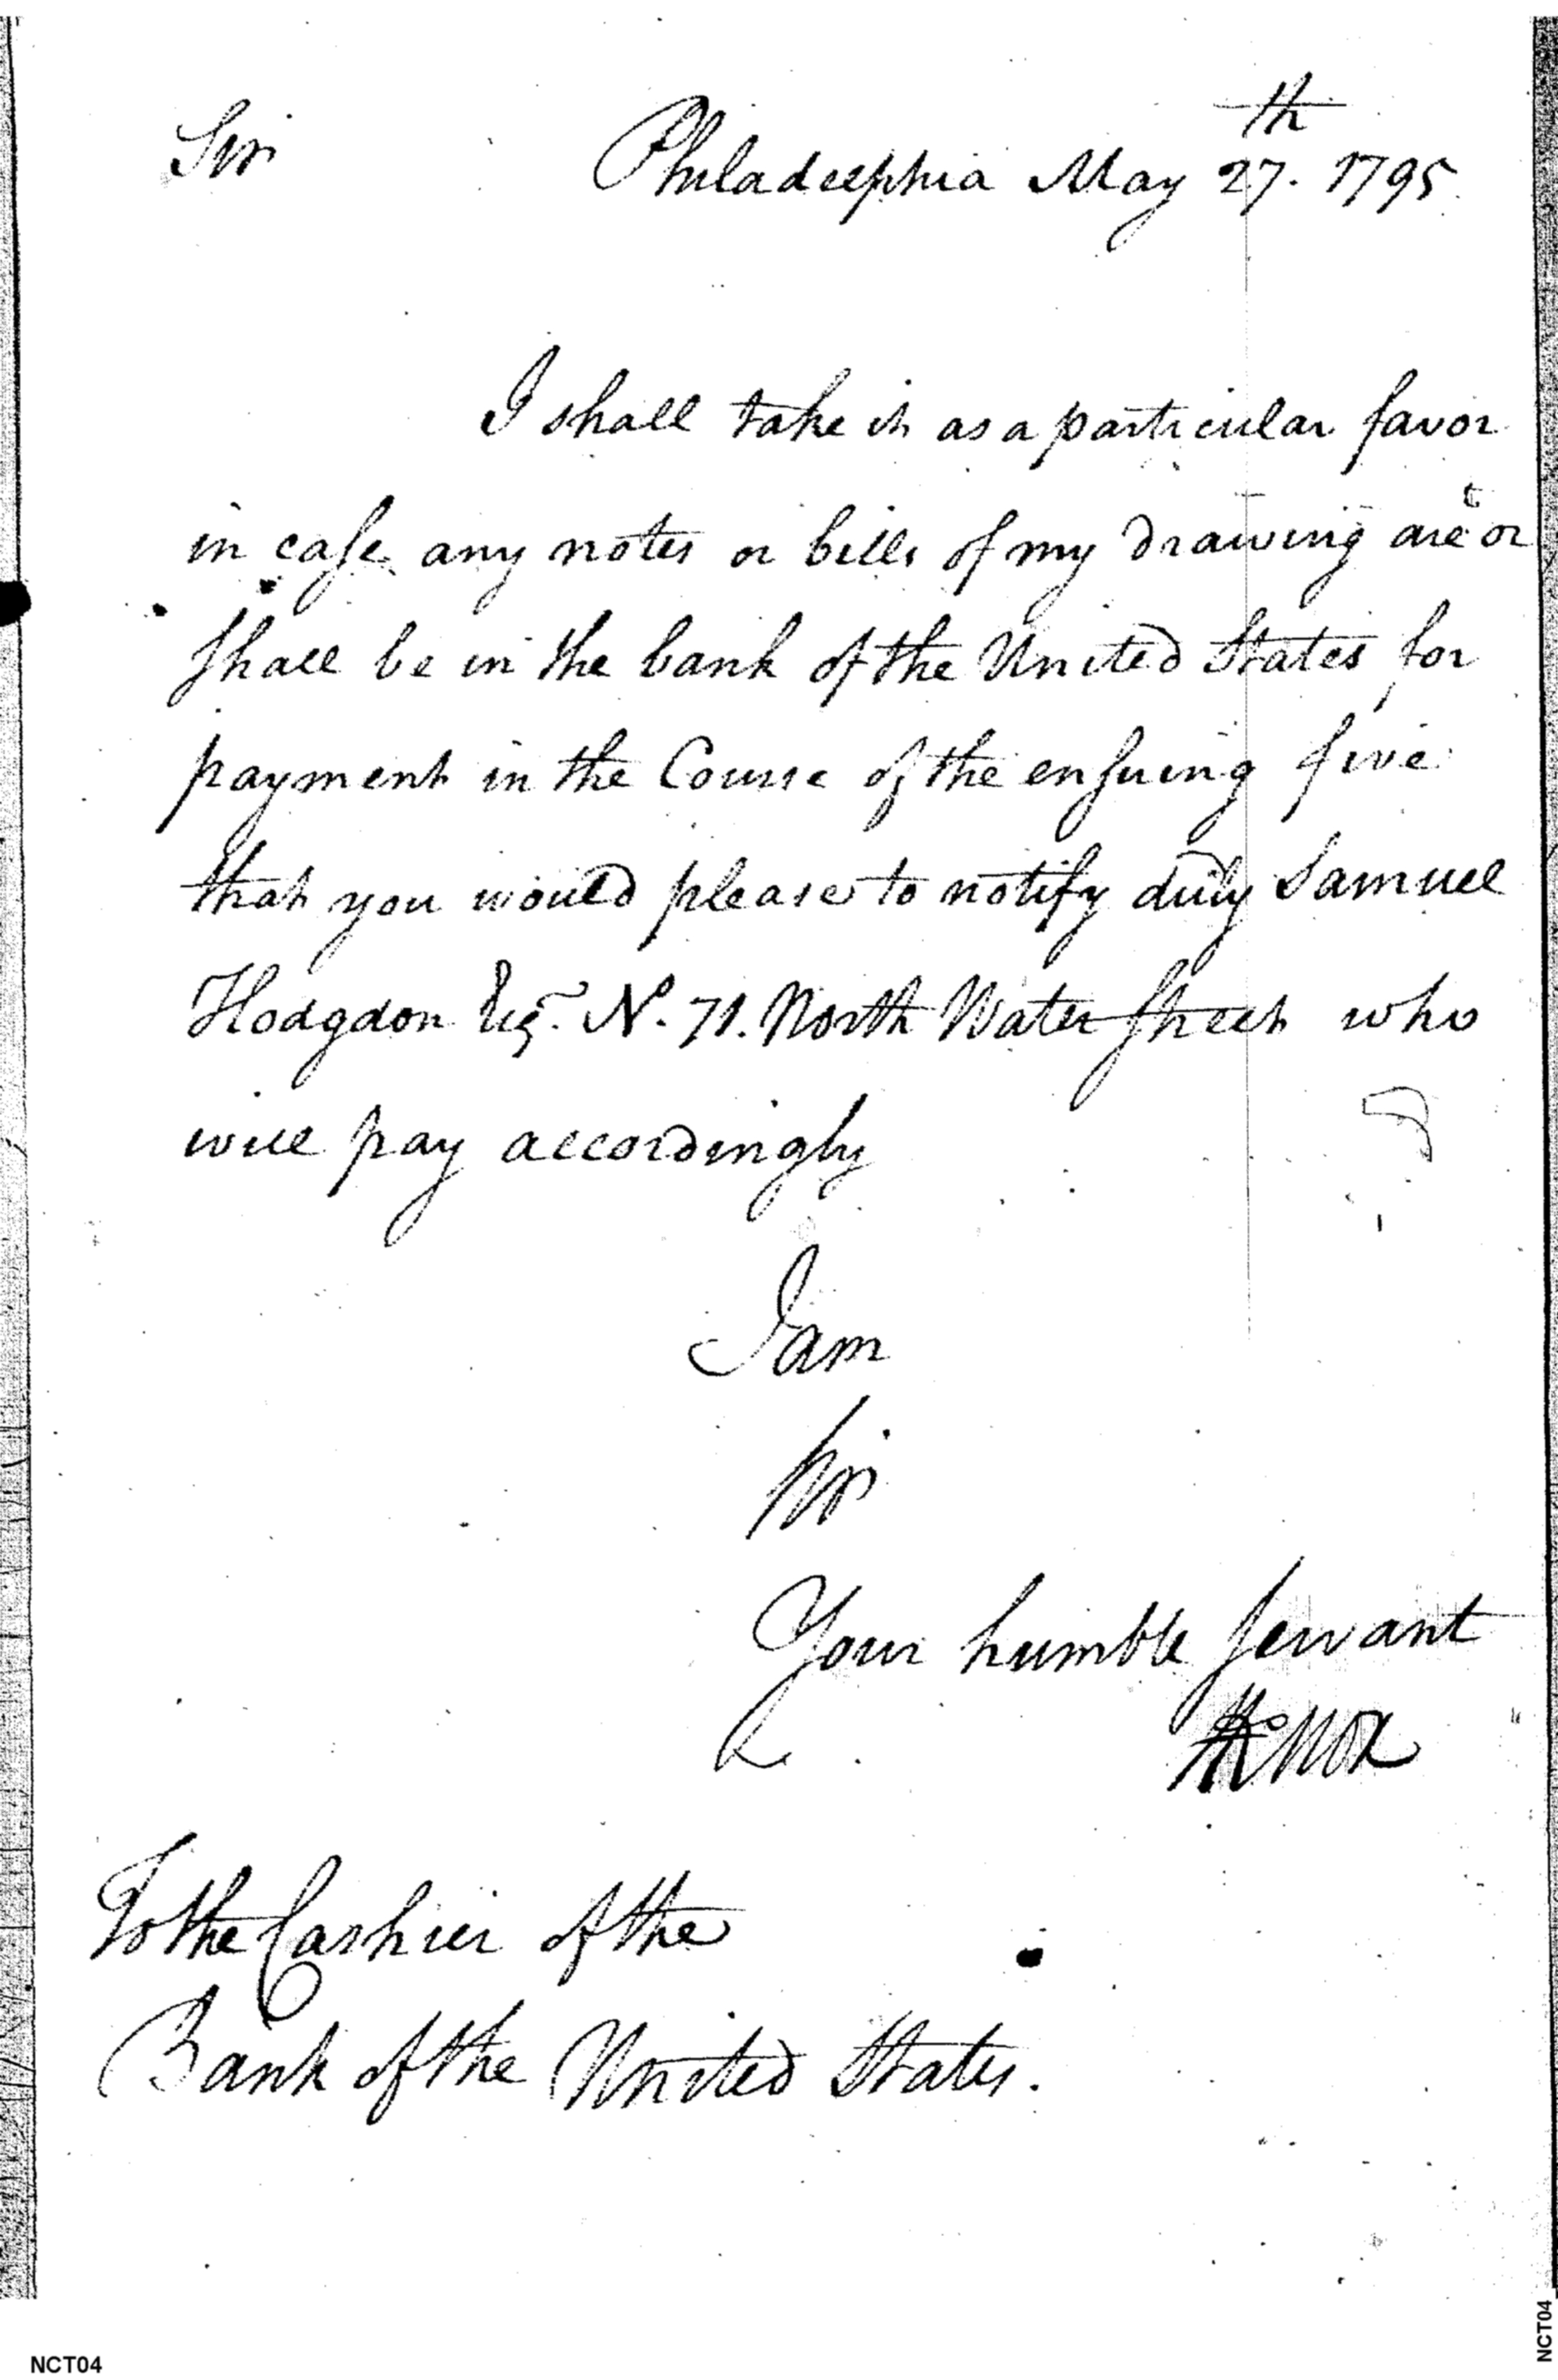 Sir Philadelphia May 27th. 1795
I shall take it as a particular favor
in case any notes or bills of my drawing are or
shall be in the bank of the United States for
payment in the Course of the ensuing five
that you would please to notify duly Samuel
Hodgdon Esqr. No. 71. North Water Street who
will pay accordingly
I am
Sir
Your humble servant
HKnox
To the Cashier of the
Bank of the United States.
NCT04
NCT04